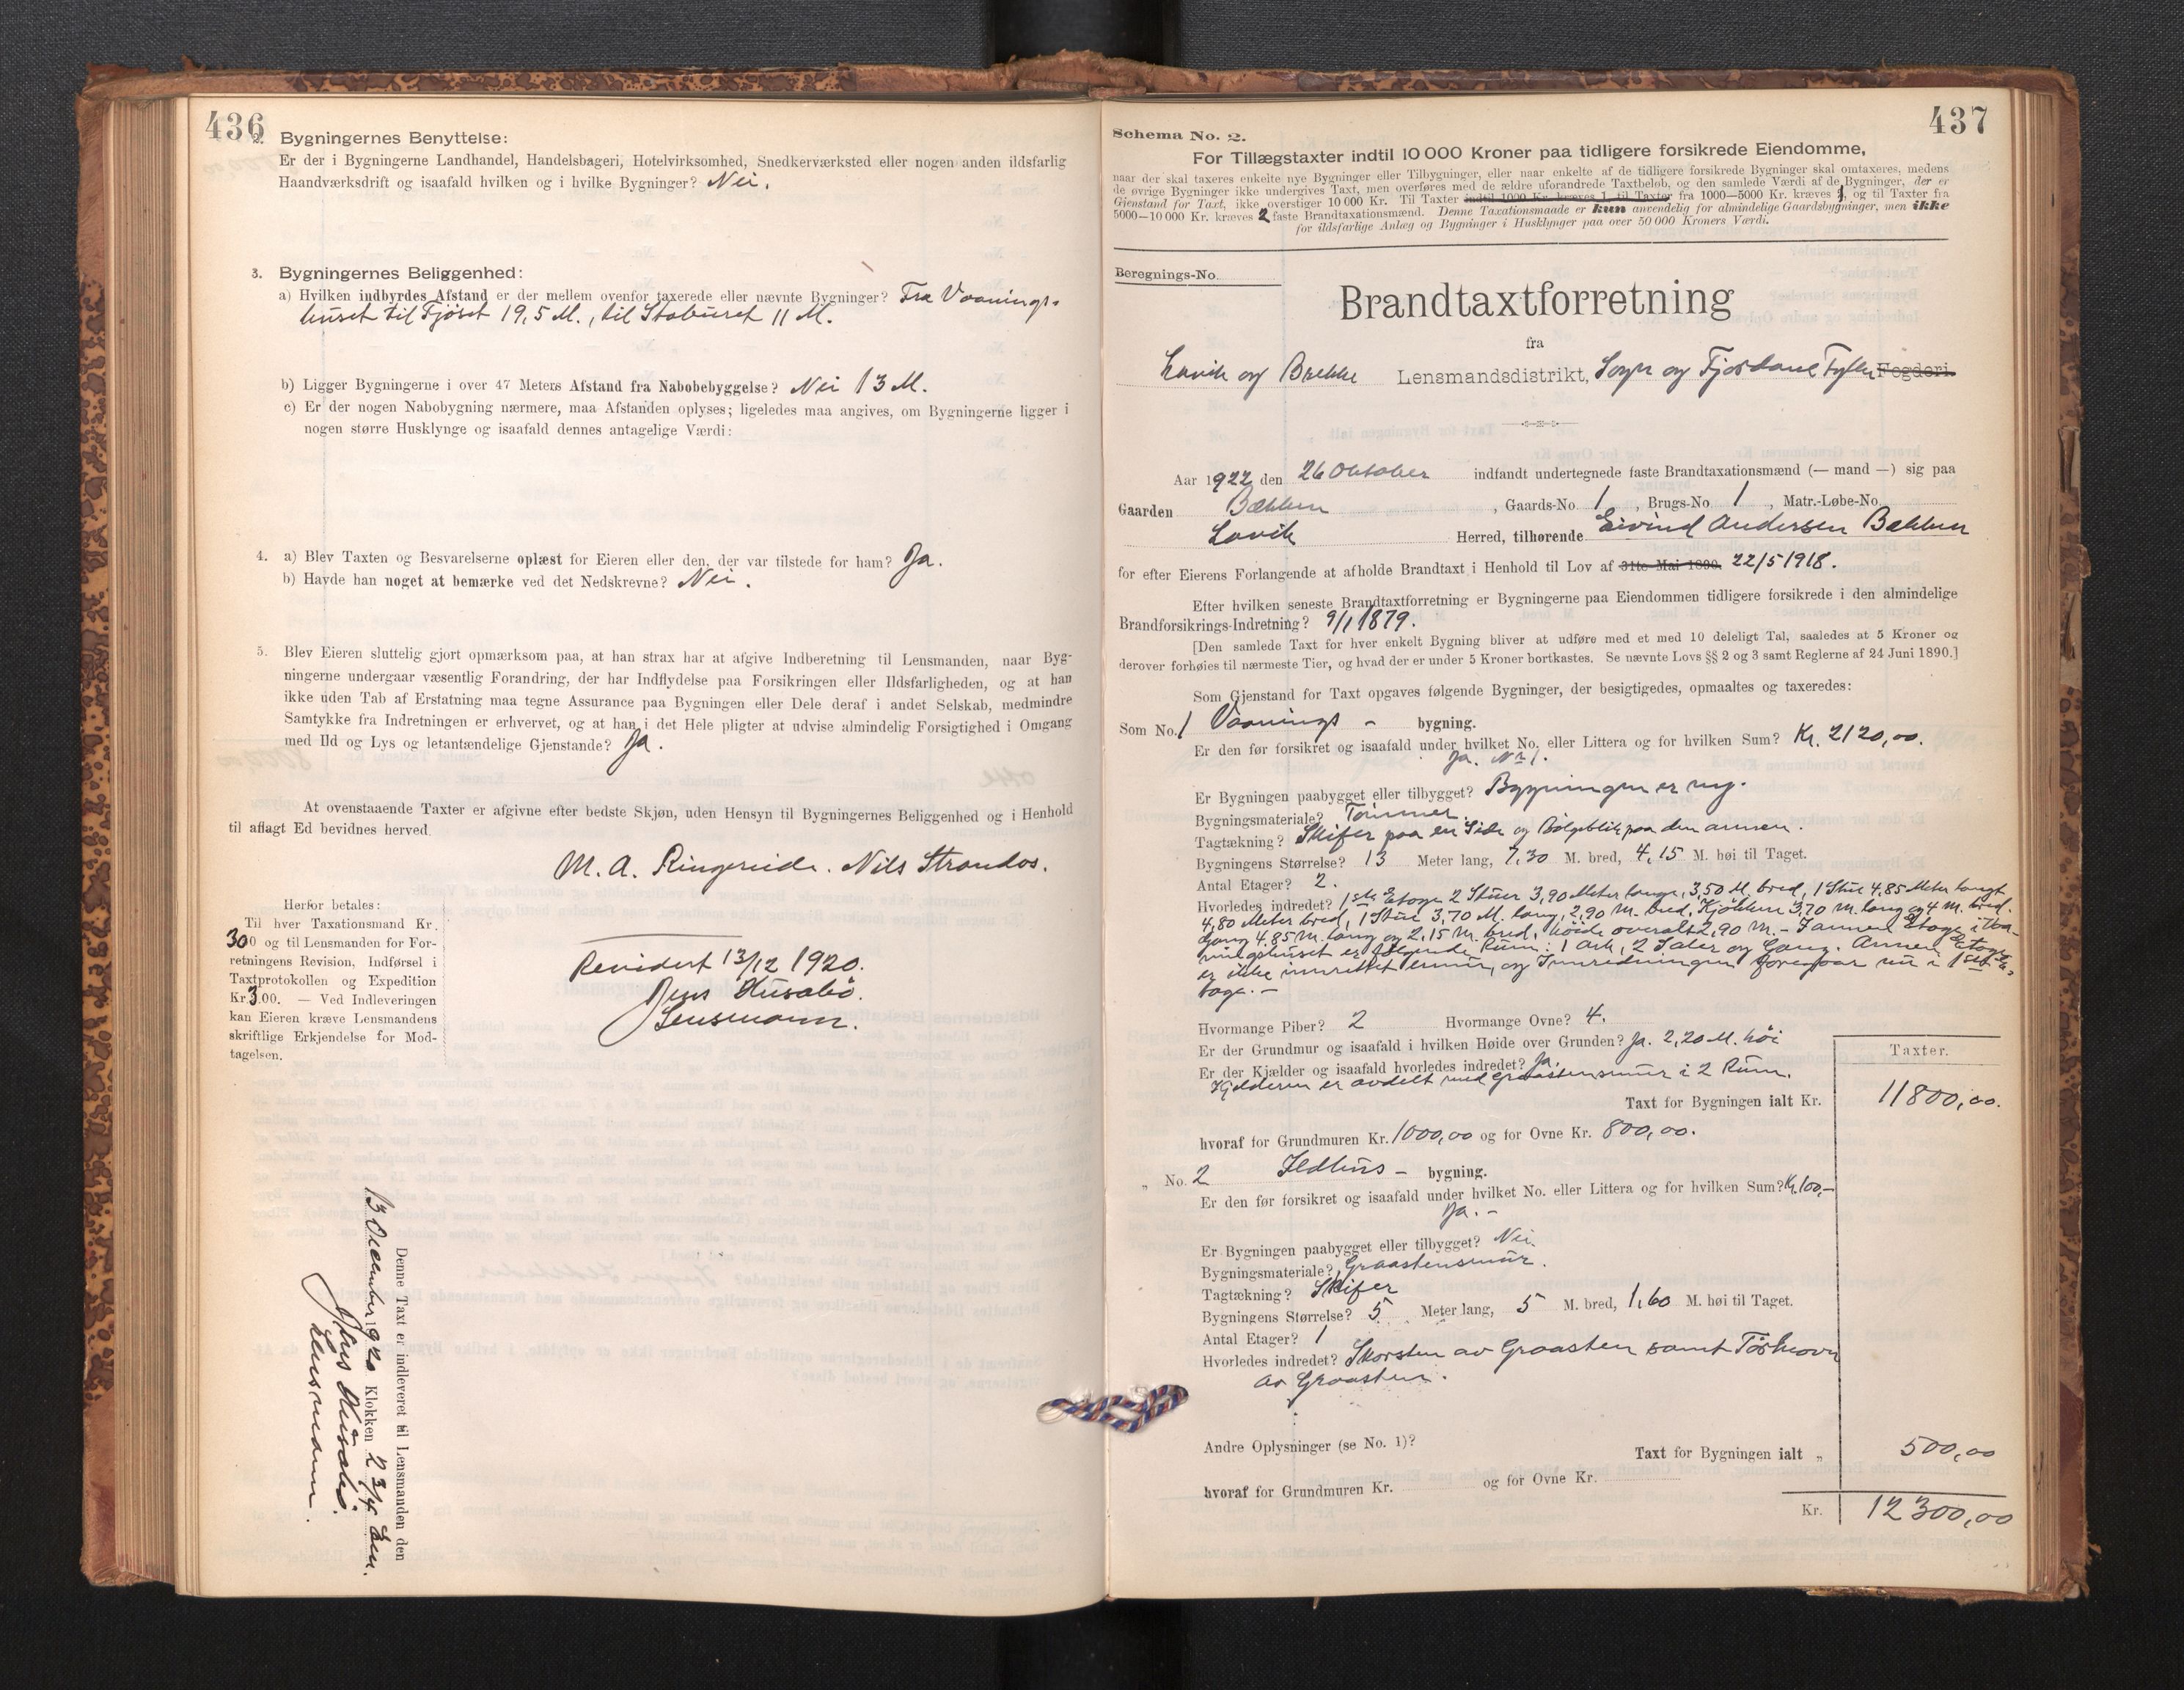 436
2. Bygningernes Benyttelse:
Er der i Bygningerne Landhandel, Handelsbageri, Hotelvirksomhed, Snedkerværksted eller nogen anden ildsfarlig
Haandværksdrift og isaafald hvilken og i hvilke Bygninger? Nei.
3. Bygningernes Beliggenhed:
a) Hvilken indbyrdes Afstand er der mellem ovenfor taxerede eller nævnte Bygninger? Fra Vaanings-
huset til Fjöset 19,5 M., til Staburet 11 M.
b) Ligger Bygningerne i over 47 Meters Afstand fra Nabobebyggelse? Nei 13 M.
c) Er der nogen Nabobygning nærmere, maa Afstanden oplyses; ligeledes maa angives, om Bygningerne ligger i
nogen større Husklynge og isaafald dennes antagelige Værdi:
4. a) Blev Taxten og Besvarelserne oplæst for Eieren eller den, der var tilstede for ham? Ja.
b) Havde han noget at bemærke ved det Nedskrevne? Nei.
5. Blev Eieren sluttelig gjort opmærksom paa, at han strax har at afgive Indberetning til Lensmanden, naar Byg-
ningerne undergaar væsentlig Forandring, der har Indflydelse paa Forsikringen eller Ildsfarligheden, og at han
ikke uden Tab af Erstatning maa tegne Assurance paa Bygningen eller Dele deraf i andet Selskab, medmindre
Samtykke fra Indretningen er erhvervet, og at han i det Hele pligter at udvise almindelig Forsigtighed i Omgang
med Ild og Lys og letantændelige Gjenstande? Ja.
At ovenstaaende Taxter er afgivne efter bedste Skjøn, uden Hensyn til Bygningernes Beliggenhed og i Henhold
til aflagt Ed bevidnes herved.
M. A. Ringereide. Nils Strandos.
Herfor betales:
Til hver Taxationsmand Kr.
300 og til Lensmanden for For-
retningens Revision, Indførsel i
Taxtprotokollen og Expedition
Kr. 3.00. — Ved Indleveringen
kan Eieren kræve Lensmandens
skriftlige Erkjendelse for Mod-
tagelsen.
Revidert 13/12 1920.
Jens Husabö.
Lensmann.
Denne Taxt er indleveret til Lensmanden den
13 December 1920 Klokken 2 3/4 Em.
Jens Husabö.
Lensmann.
437
Schema No. 2.
For Tillægstaxter indtil 10 000 Kroner paa tidligere forsikrede Eiendomme,
naar der skal taxeres enkelte nye Bygninger eller Tilbygninger, eller naar enkelte af de tidligere forsikrede Bygninger skal omtaxeres, medens
de øvrige Bygninger ikke undergives Taxt, men overføres med de ældre uforandrede Taxtbeløb, og den samlede Værdi af de Bygninger, der er
Gjenstand for Taxt, ikke overstiger 10 000 Kr. Til Taxter indtil 1000 Kr. kræves 1, til Taxter fra 1000—5000 Kr. kræves 1, og til Taxter fra
5000—10 000 Kr. kræves 2 faste Brandtaxationsmænd. Denne Taxationsmaade er kun anvendelig for almindelige Gaardsbygninger, men ikke
for ildsfarlige Anlæg og Bygninger i Husklynger paa over 50 000 Kroners Værdi.
Beregnings-No.
Brandtaxtforretning
fra
Lavik og Brekke Lensmandsdistrikt, Sogn og Fjordane Fylke Fogderi.
Aar 1922 den 26 Oktober indfandt undertegnede faste Brandtaxationsmænd (— mand —) sig paa
Gaarden Bækken, Gaards-No. 1, Brugs-No. 1, Matr.-Løbe-No.
Lavik Herred, tilhørende Eivind Andersen Bækken
for efter Eierens Forlangende at afholde Brandtaxt i Henhold til Lov af 31te Mai 1890. 22/5 1918.
Efter hvilken seneste Brandtaxtforretning er Bygningerne paa Eiendommen tidligere forsikrede i den almindelige
Brandforsikrings-Indretning? 9/1 1879.
[Den samlede Taxt for hver enkelt Bygning bliver at udføre med et med 10 deleligt Tal, saaledes at 5 Kroner og
derover forhøies til nærmeste Tier, og hvad der er under 5 Kroner bortkastes. Se nævnte Lovs §§ 2 og 3 samt Reglerne af 24 Juni 1890.]
Som Gjenstand for Taxt opgaves følgende Bygninger, der besigtigedes, opmaaltes og taxeredes:
Som No. 1 Vaanings - bygning.
Er den før forsikret og isaafald under hvilket No. eller Littera og for hvilken Sum? Kr. 2120,00.
Ja. No 1.
Er Bygningen paabygget eller tilbygget? Bygningen er ny.
Bygningsmateriale? Tömmer.
Tagtækning? Skifer paa en Side og Bölgeblik paa den annen.
Bygningens Størrelse? 13 Meter lang, 7,30 M. bred, 4,15 M. høi til Taget.
Antal Etager? 2.
Hvorledes indredet? 1ste Etage 2 Stuer 3,90 Meter lange, 3,50 M. bred, 1 Stue 4,85 Meter langt
4,80 Meter bred, 1 Stue 3,70 M. lang, 2,90 M. bred, Kjökken 3,70 M. lang og 4 M. bred.
Gang 4,85 M. lang og 2,15 M. bred, höide overalt 2,90 M. - I annen Etage i Vaa-
ningshuset er følgende Rum: 1 Ark, 2 Saler og Gang. Annen Etage
er ikke innrettet ennu, og Innredningen foregaar nu i 1ste E-
tage. -
Hvormange Piber? 2 Hvormange Ovne? 4.
Er der Grundmur og isaafald i hvilken Høide over Grunden? Ja. 2,20 M. höi
Er der Kjælder og isaafald hvorledes indredet? Ja.
Kjelderen er avdelt med Graastensmur i 2 Rum.
Taxter.
Taxt for Bygningen ialt Kr. 11800,00.
hvoraf for Grundmuren Kr. 1000,00 og for Ovne Kr. 800,00.
„ No. 2 Ildhus - bygning.
Er den før forsikret og isaafald under hvilket No. eller Littera og for hvilken Sum? Kr. 100,-
Ja. -
Er Bygningen paabygget eller tilbygget? Nei
Bygningsmateriale? Graastensmur.
Tagtækning? Skifer
Bygningens Størrelse? 5 Meter lang, 5 M. bred, 1,60 M. høi til Taget.
Antal Etager? 1
Hvorledes indredet? Skorsten av Graasten samt Törkeovn
av Graasten.
Andre Oplysninger (se No. 1)?
Taxt for Bygningen ialt „ 500,00
hvoraf for Grundmuren Kr. og for Ovne Kr.
Kr. 12300,00